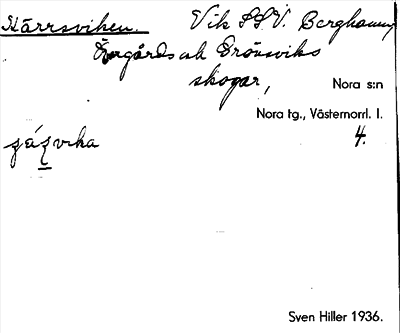 Kärrsviken. Vik SSV. Berghamn,
Norgårds och Grönsviks
skogar, Nora s:n
Nora tg., Västernorrl. l.
4.
Sven Hiller 1936.